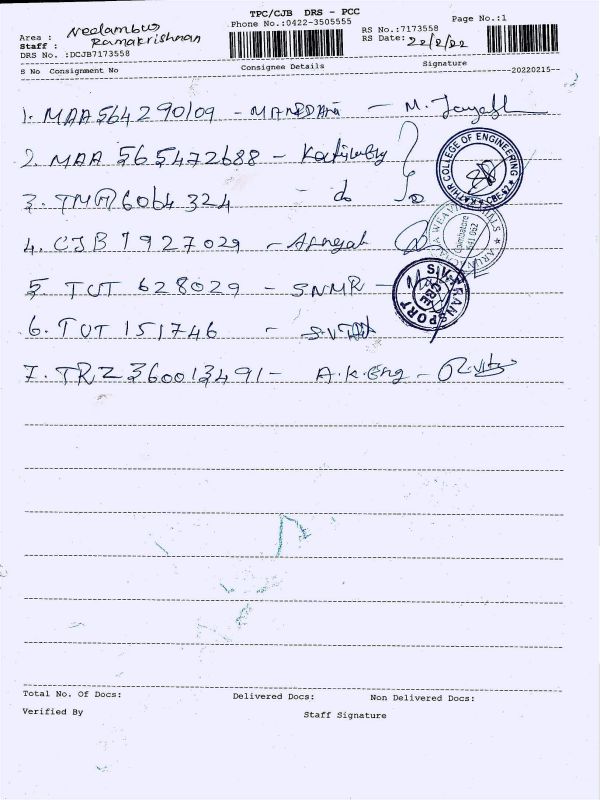 TPC/CJB DRS - PCC
Phone No.:0422-3505555
Page No.:1
Area : Neelambur
Staff : Ramakrishnan
DRS No. :DCJB7173558
RS No.:7173558
RS Date: 22/2/22
S No Consignment No
Consignee Details
Signature
20220215
1. MAA564290109 -
2. MAA 565472688 -
3. TMG 6064324 - do
4. CJB 7927029 -
5. TUT 628029 - SNMR -
6. TUT 151746 -
7. TRZ 360013491 - A.K.Eng -
KATHIR COLLEGE OF ENGINEERING
CBE-62
Coimbatore
641 062
S.V. TRANSPORT
CBE
Total No. Of Docs:
Delivered Docs:
Non Delivered Docs:
Verified By
Staff Signature